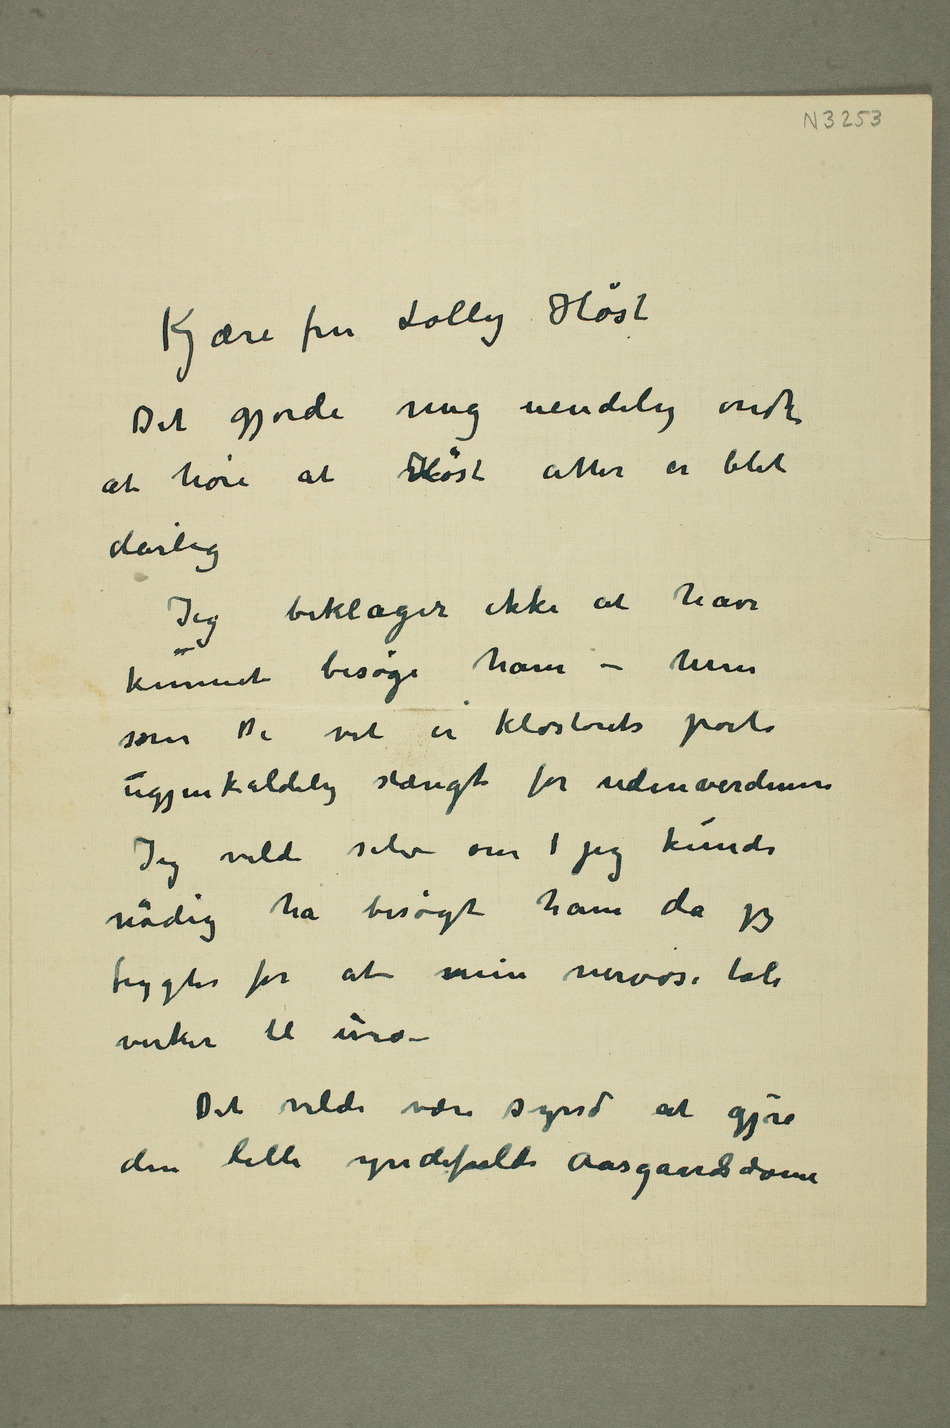 N3253
Kjære fru Lolly Høst
Det gjorde mig uendelig ondt
at høre at Høst atter er blet
dårlig
Jeg beklager ikke at have
kunnet besøge ham – men
som De vet er klosterets porte
ugjenkaldelig stængt for udenverdenen
Jeg vilde selv om jeg kunde
nødig ha besøgt ham da jeg
frygter for at min nervøse tale
virker til uro –
Det vilde være synd at gjøre
den lille yndefulde Aasgaardsdame